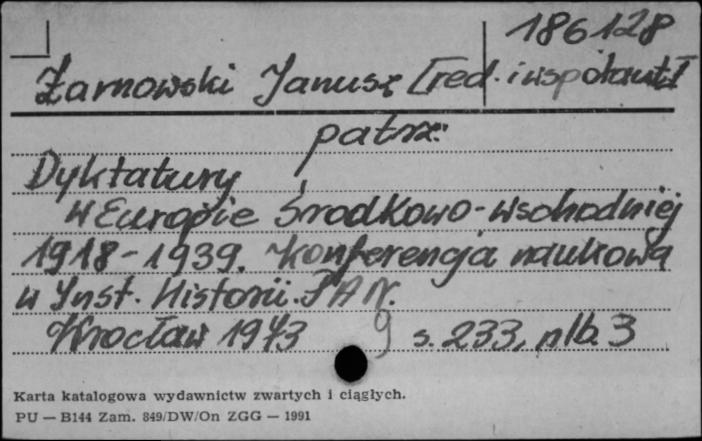 186128
Żarnowski Janusz [red. i współaut.]
patrz:
Dyktatury
w Europie Środkowo-Wschodniej
1918-1939. Konferencja naukowa
w Inst. Historii PAN.
Wrocław 1973 9 s. 233, nlb. 3
Karta katalogowa wydawnictw zwartych i ciągłych.
PU — B144 Zam. 849/DW/On ZGG — 1991